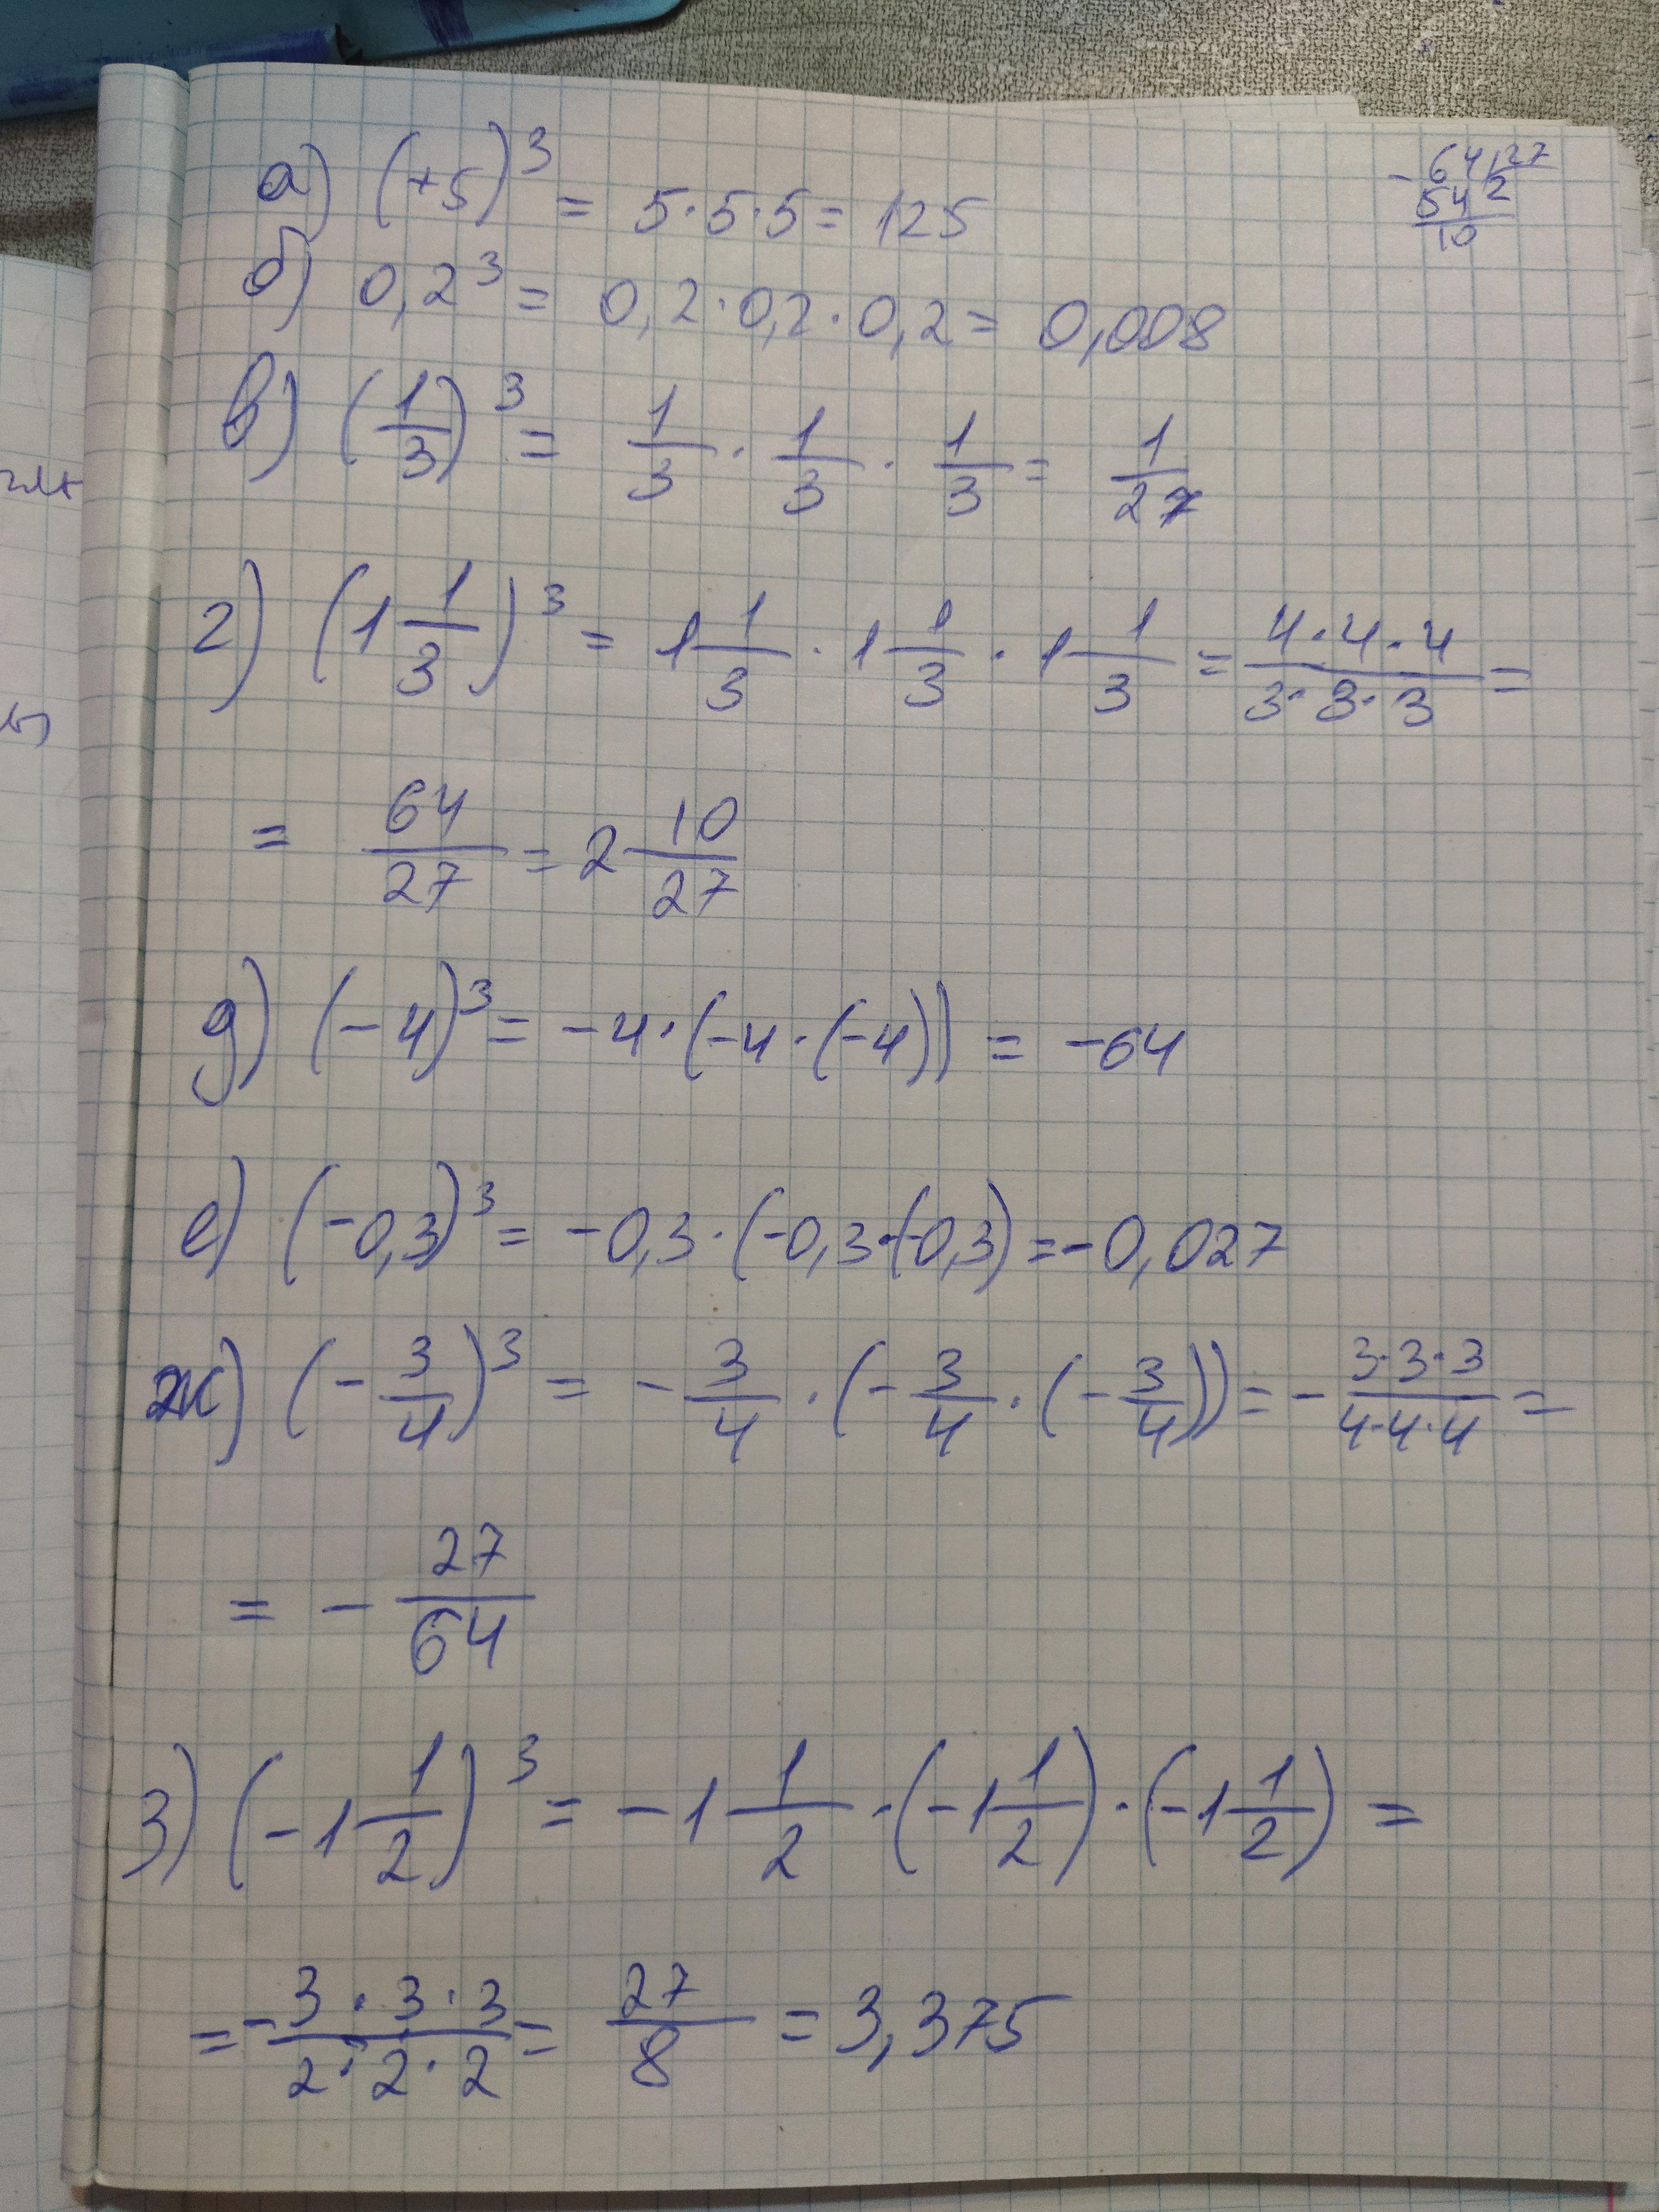 а) (+5)³ = 5·5·5 = 125
-64 27
54 2
10
б) 0,2³ = 0,2·0,2·0,2 = 0,008
в) (1/3)³ = 1/3 · 1/3 · 1/3 = 1/27
г) (1 1/3)³ = 1 1/3 · 1 1/3 · 1 1/3 = 4·4·4/3·3·3 =
= 64/27 = 2 10/27
д) (-4)³ = -4·(-4·(-4)) = -64
е) (-0,3)³ = -0,3·(-0,3·(-0,3) = -0,027
ж) (-3/4)³ = -3/4 · (-3/4 · (-3/4)) = - 3·3·3/4·4·4 =
= - 27/64
з) (-1 1/2)³ = -1 1/2 · (-1 1/2) · (-1 1/2) =
= - 3·3·3/2·2·2 = 27/8 = 3,375